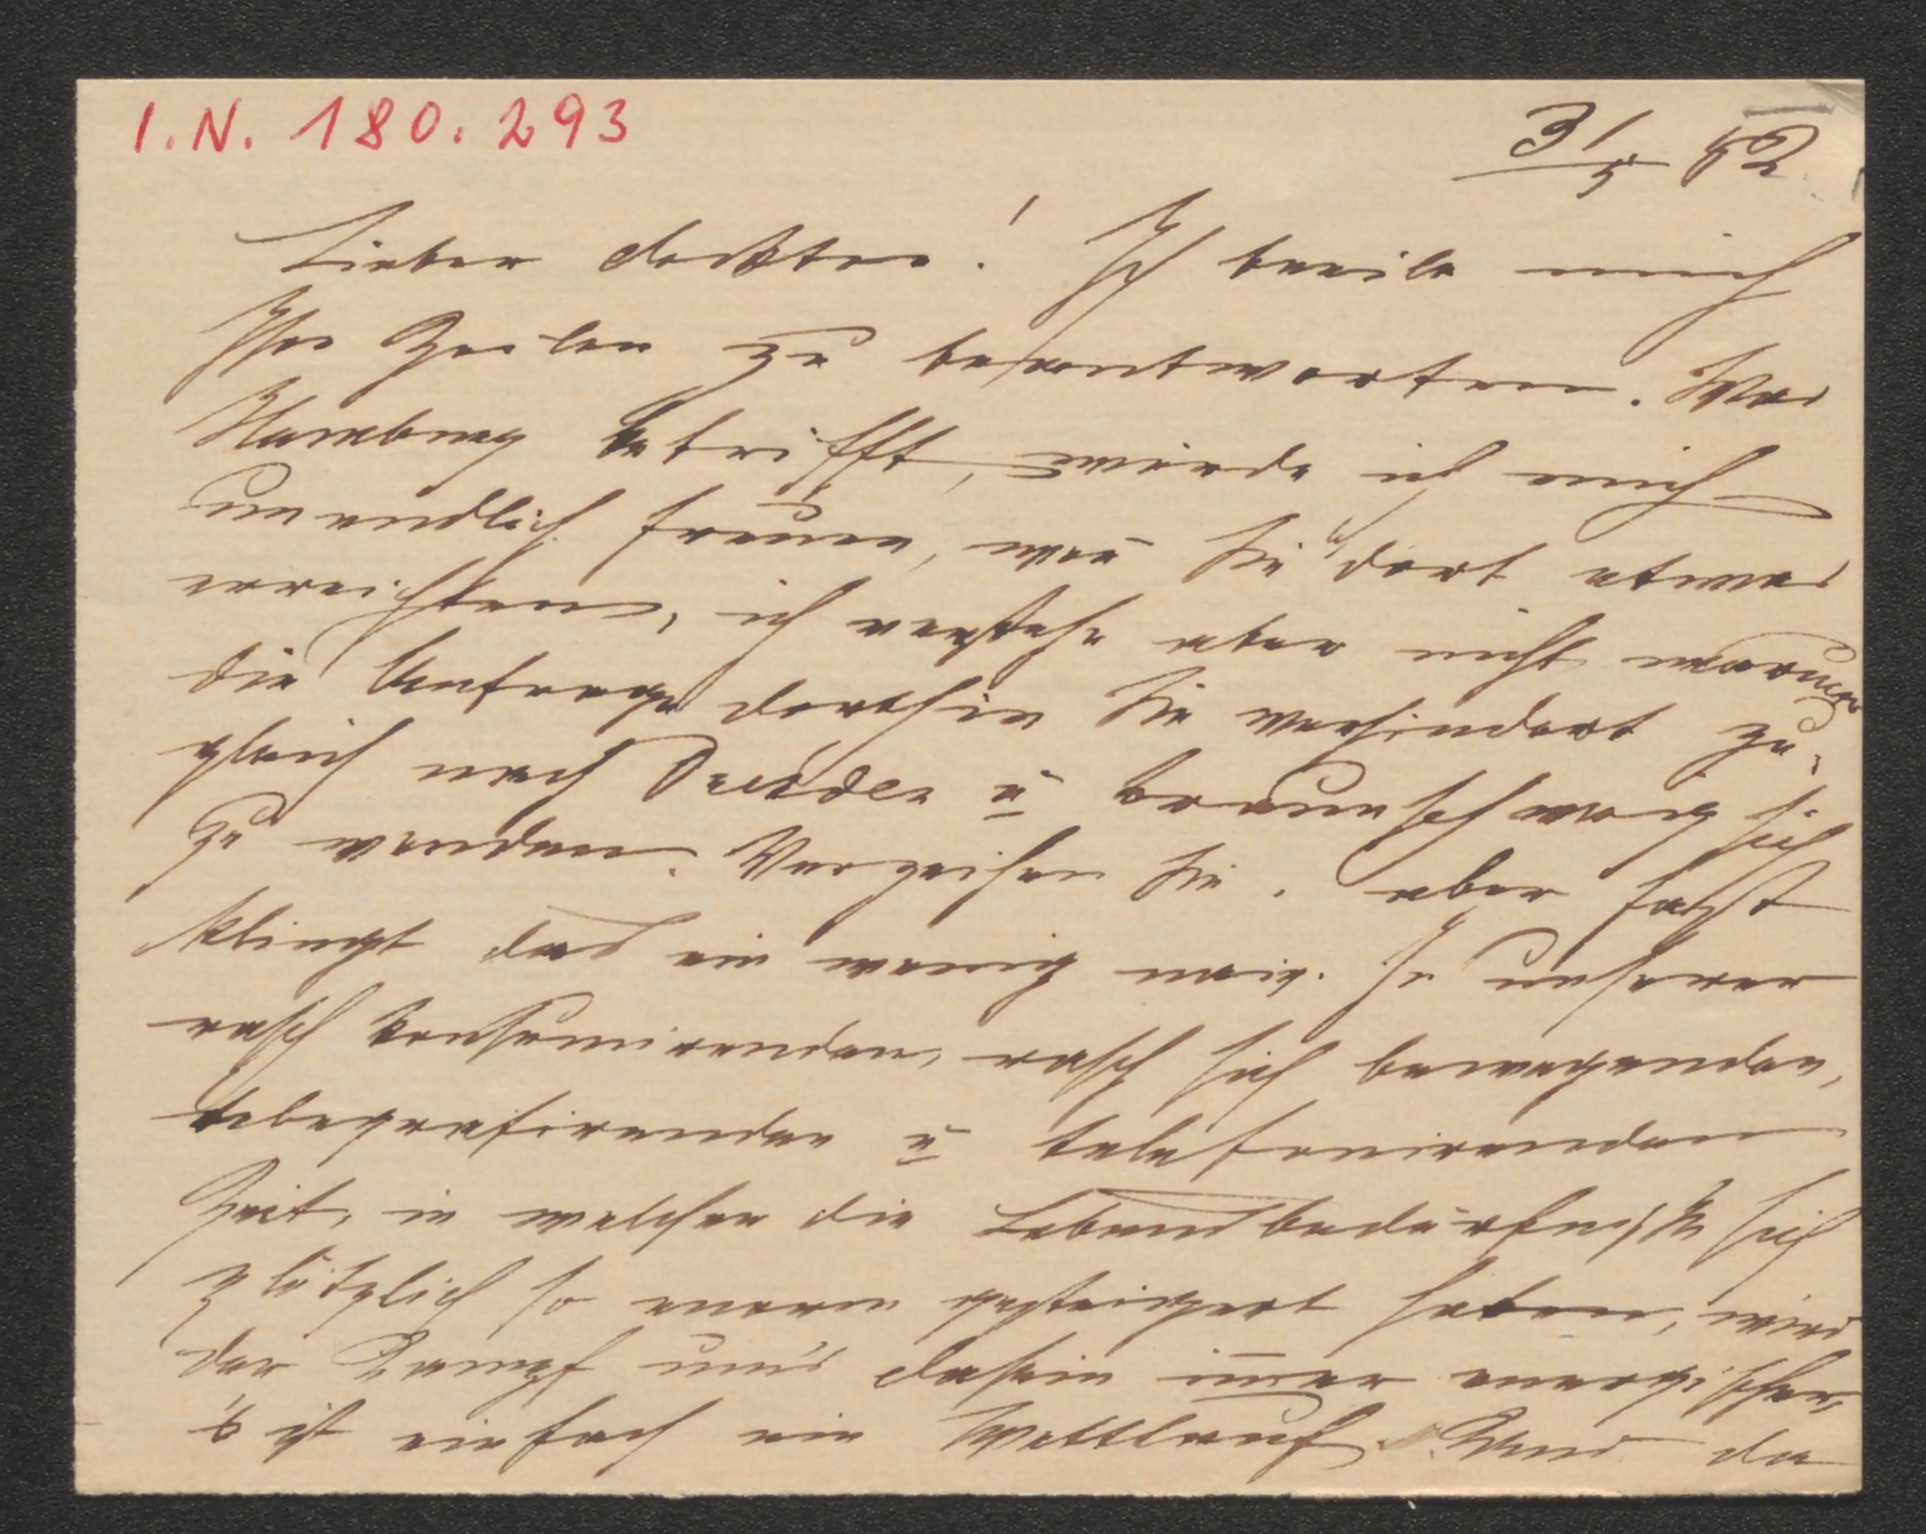 I.N. 180.293
31/5 82
Lieber Doktor! Ich beeile mich
Ihre Zeilen zu beantworten. Was
Hamburg betrifft, würde ich mich
unendlich freuen, wenn Sie dort etwas
erreichten, ich verstehe aber nicht warum
die Anfrage dorthin Sie verhindert zu-
gleich nach Dresden u Braunschweig sich
zu wenden. Verzeihen Sie, aber fast
klingt das ein wenig naiv. In unserer
rasch konsumirenden, rasch sich bewegenden,
telegrafirenden u telefonirenden
Zeit, in welcher die Lebensbedürfnisse sich
plötzlich so enorm gesteigert haben, wird
der Kampf um's Dasein immer energischer,
's ist einfach ein Wettlauf. Und da